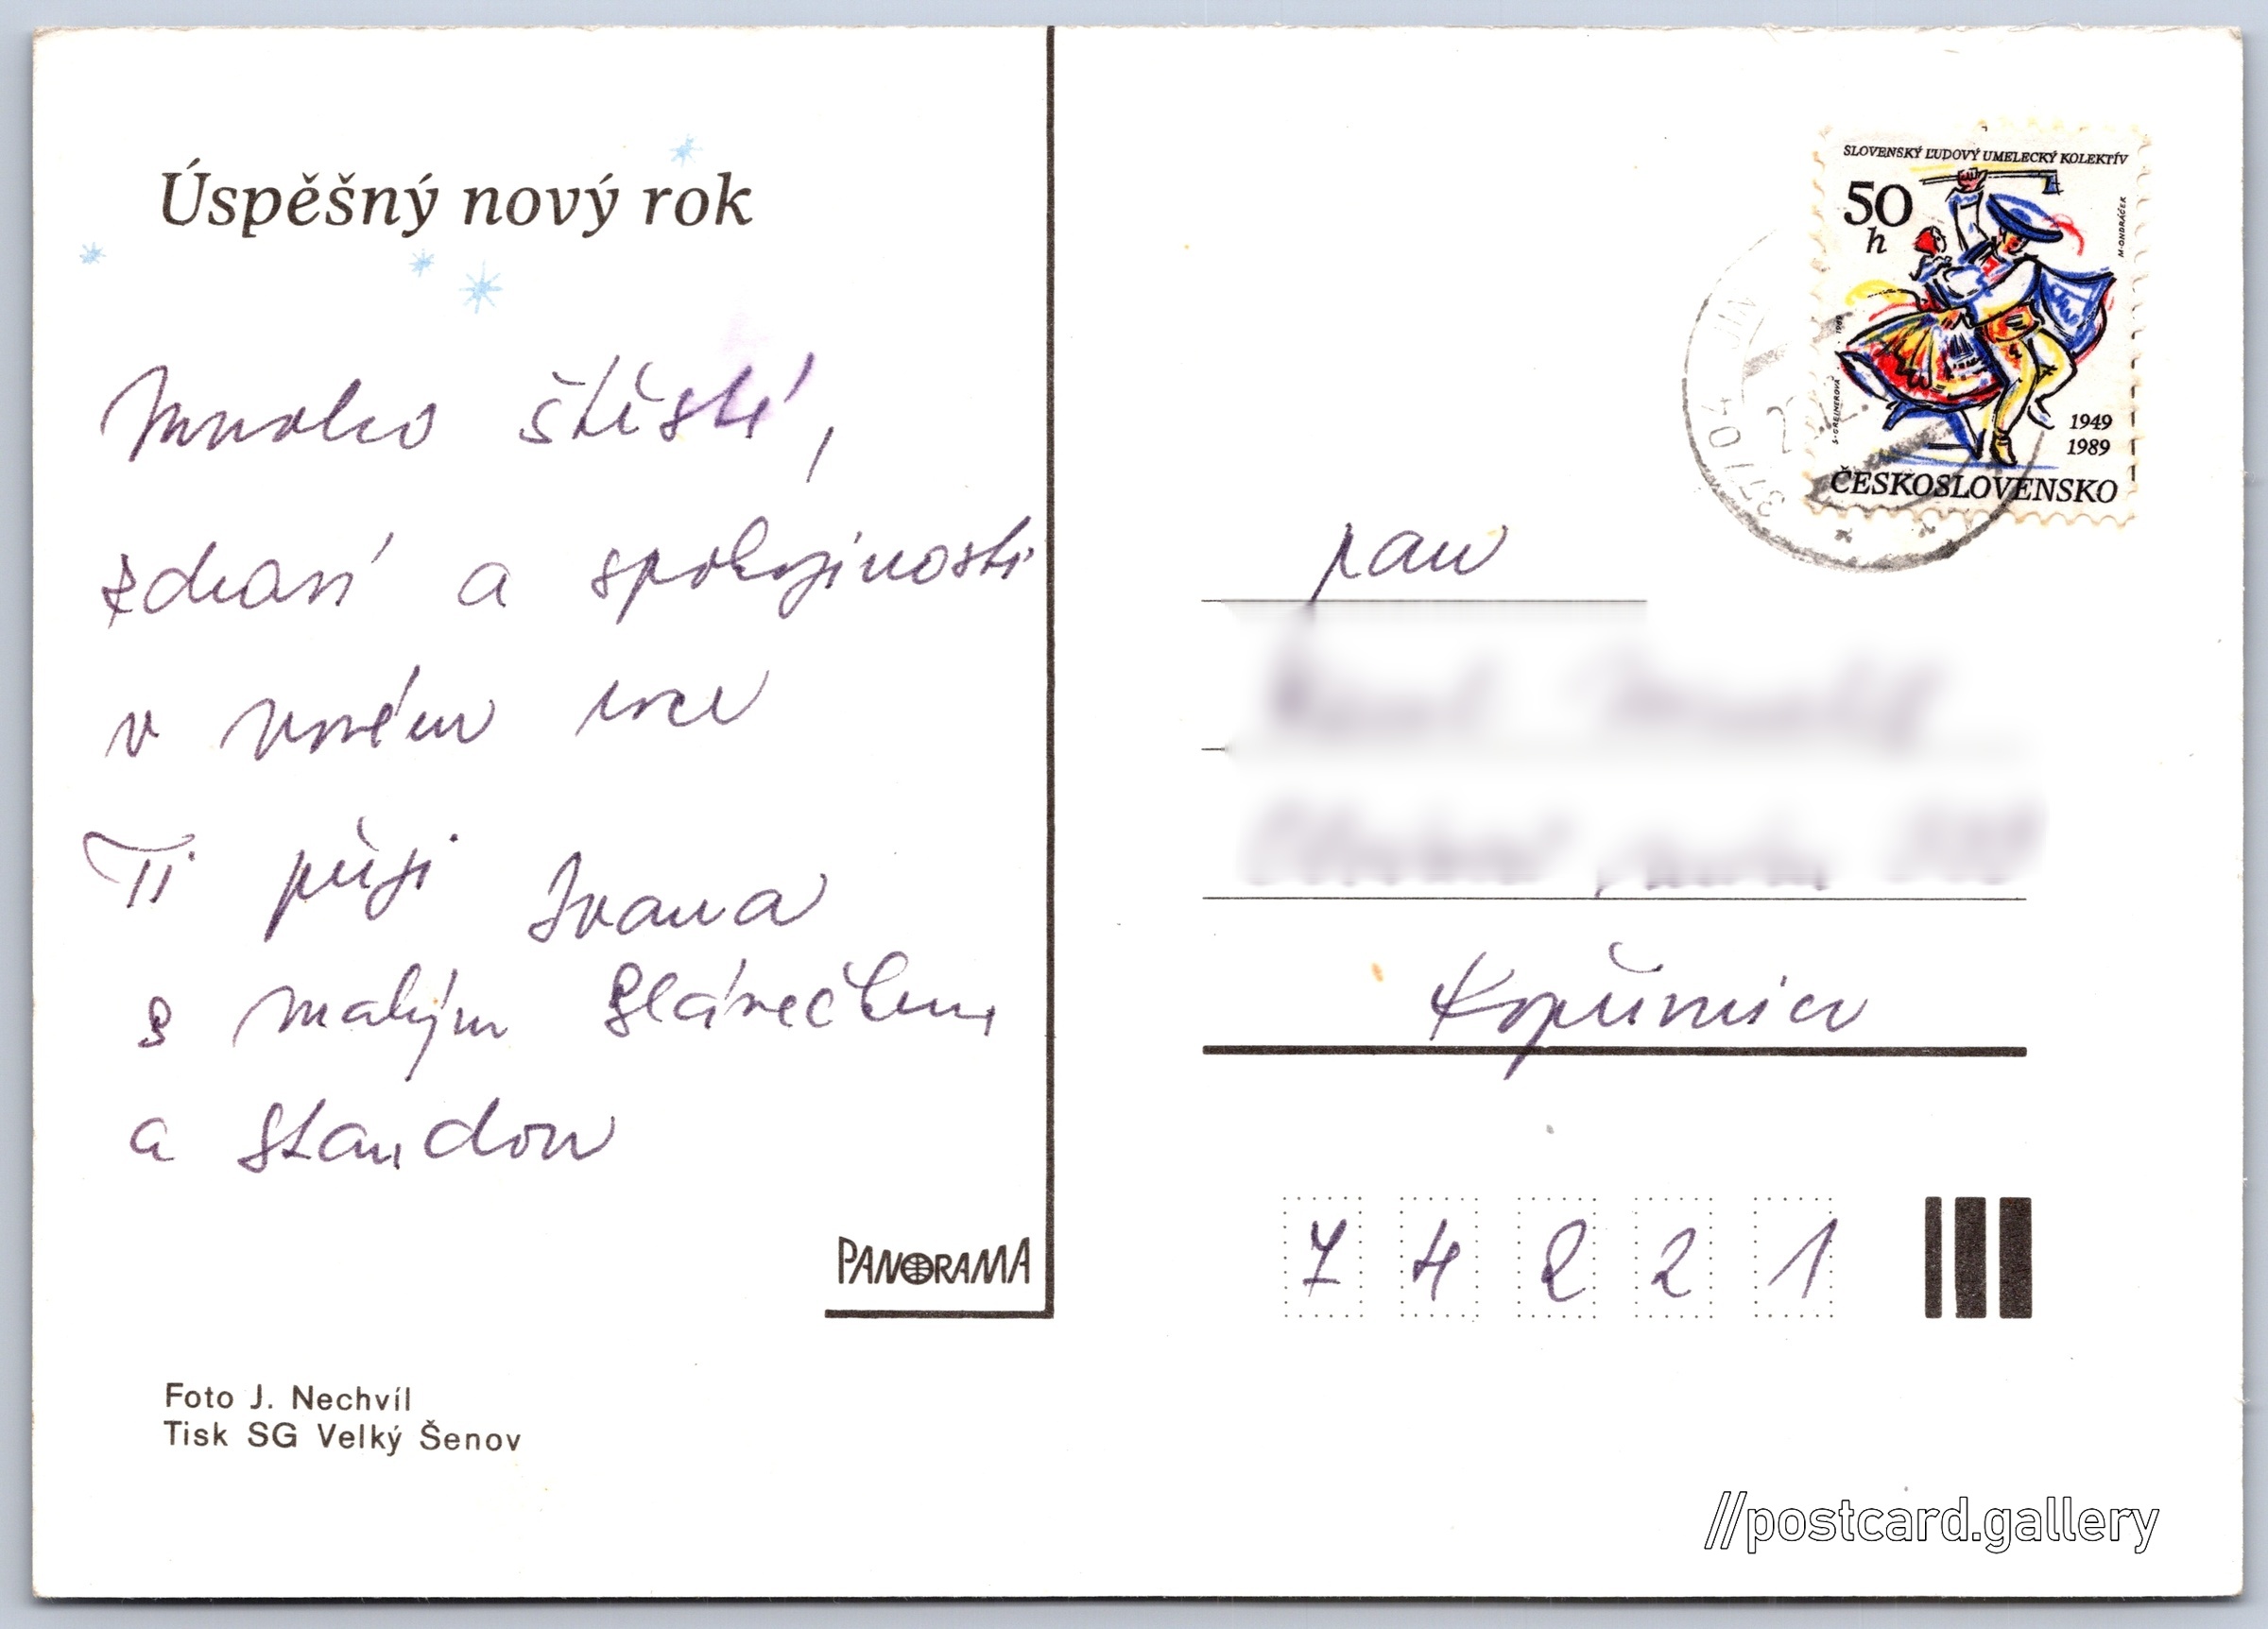 Úspěšný nový rok
Mnoho štěstí,
zdraví a spokojenosti
v novém roce
Ti přeji Ivana
s malým Slávečkem
a Standou
PANORAMA
Foto J. Nechvíl
Tisk SG Velký Šenov
SLOVENSKÝ ĽUDOVÝ UMELECKÝ KOLEKTÍV
50
h
M·ONDRÁČEK
1949
1989
ČESKOSLOVENSKO
pan
Kopřivnice
7 4 2 2 1
//postcard.gallery